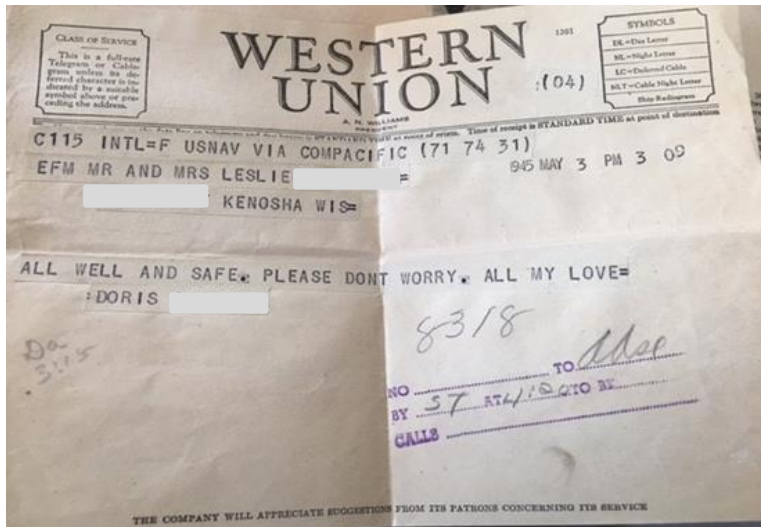 CLASS OF SERVICE
This is a full-rate
Telegram or Cable-
gram unless its de-
ferred character is in-
dicated by a suitable
symbol above or pre-
ceding the address.
WESTERN
UNION
A. N. WILLIAMS
PRESIDENT
1201
(04)
SYMBOLS
DL=Day Letter
NL=Night Letter
LC=Deferred Cable
NLT=Cable Night Letter
Ship Radiogram
STANDARD TIME at point of origin. Time of receipt is STANDARD TIME at point of destination
C115 INTL=F USNAV VIA COMPACIFIC (71 74 31)
945 MAY 3 PM 3 09
EFM MR AND MRS LESLIE =
KENOSHA WIS=
ALL WELL AND SAFE. PLEASE DONT WORRY. ALL MY LOVE=
:DORIS
8318
3:15
NO TO
BY ST AT 4:20 TO BE
CALLS
THE COMPANY WILL APPRECIATE SUGGESTIONS FROM ITS PATRONS CONCERNING ITS SERVICE